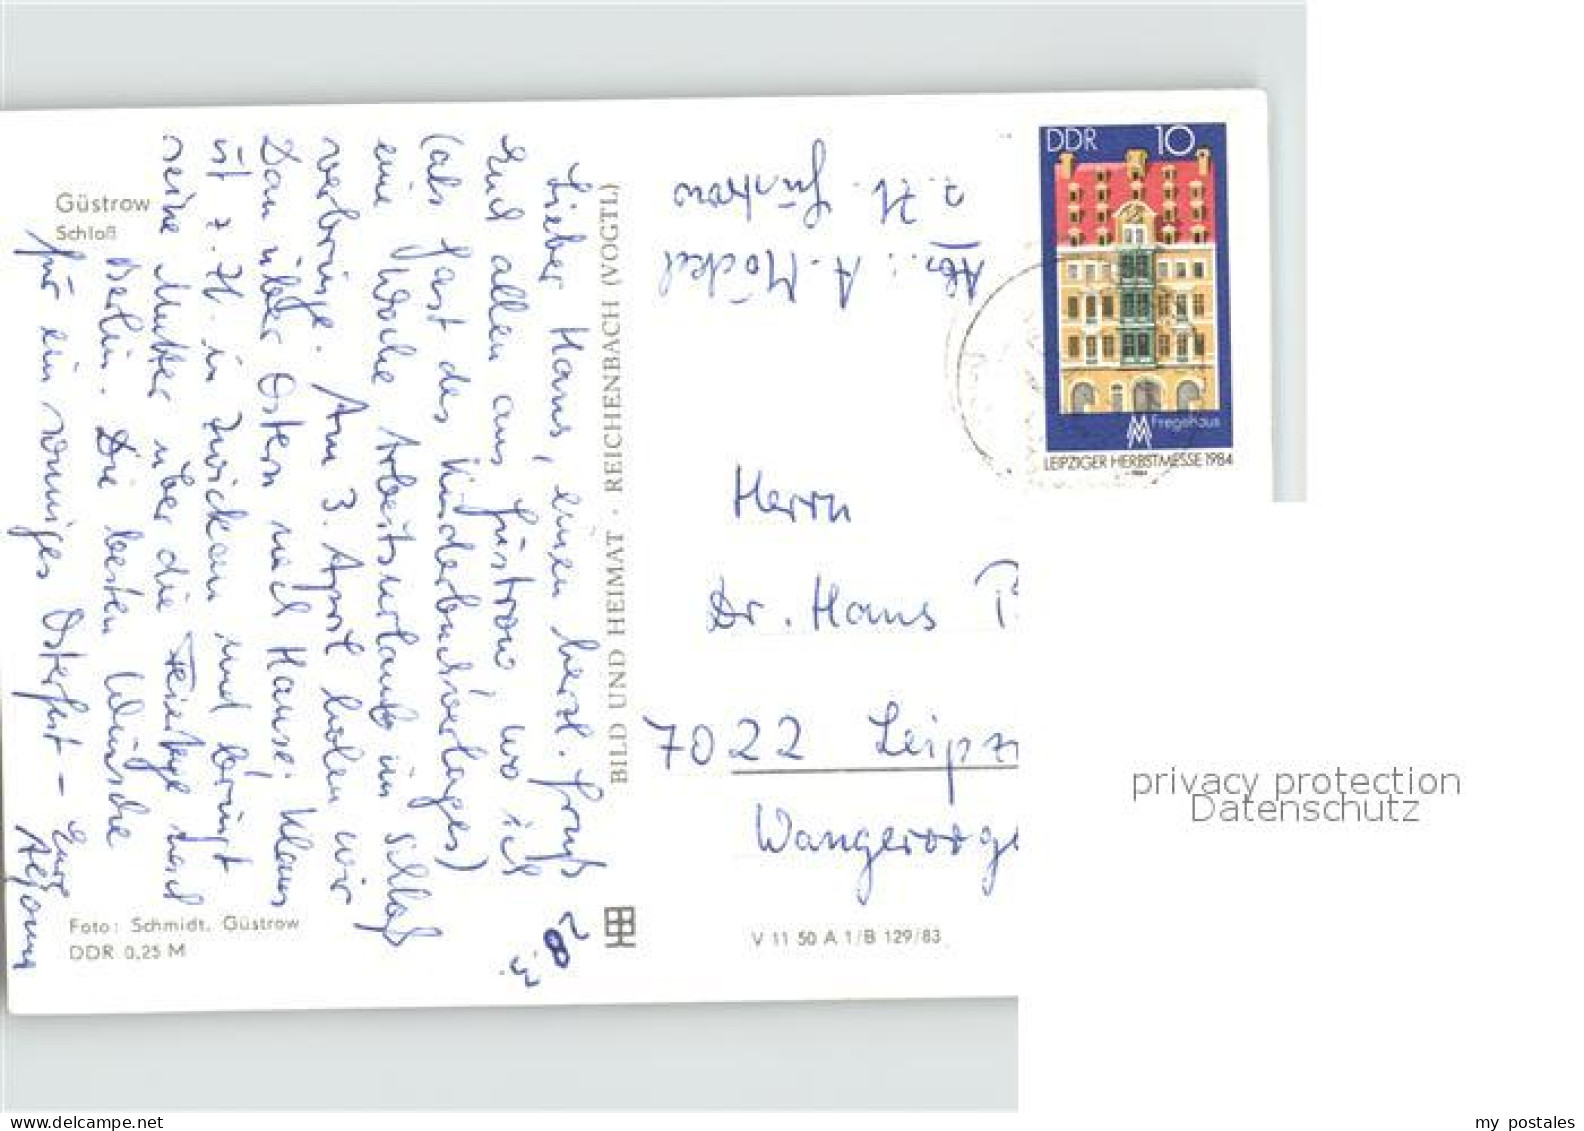 Güstrow
Schloß
28.3.
Lieber Hans, einen herzl. Gruß
Euch allen aus Güstrow, wo ich
(als Gast des Kinderbuchverlages)
eine Woche Arbeitsurlaub im Schloß
verbringe. Am 3. April holen wir
Dan über Ostern nach Hause; Klaus
ist z. Zt. in Zwickau und bringt
seine Mutter über die Feiertage nach
Berlin. Die besten Wünsche
für ein sonniges Osterfest – Eure
Foto: Schmidt, Güstrow
DDR 0,25 M
BILD UND HEIMAT · REICHENBACH (VOGTL)
Abs.: A. Möckel
z. Zt. Güstrow
DDR 10
Fregehaus
LEIPZIGER HERBSTMESSE 1984
Herrn
Dr. Hans
7022 Leipz
Wangerooge
V 11 50 A 1/B 129/83
privacy protection
Datenschutz
my postales